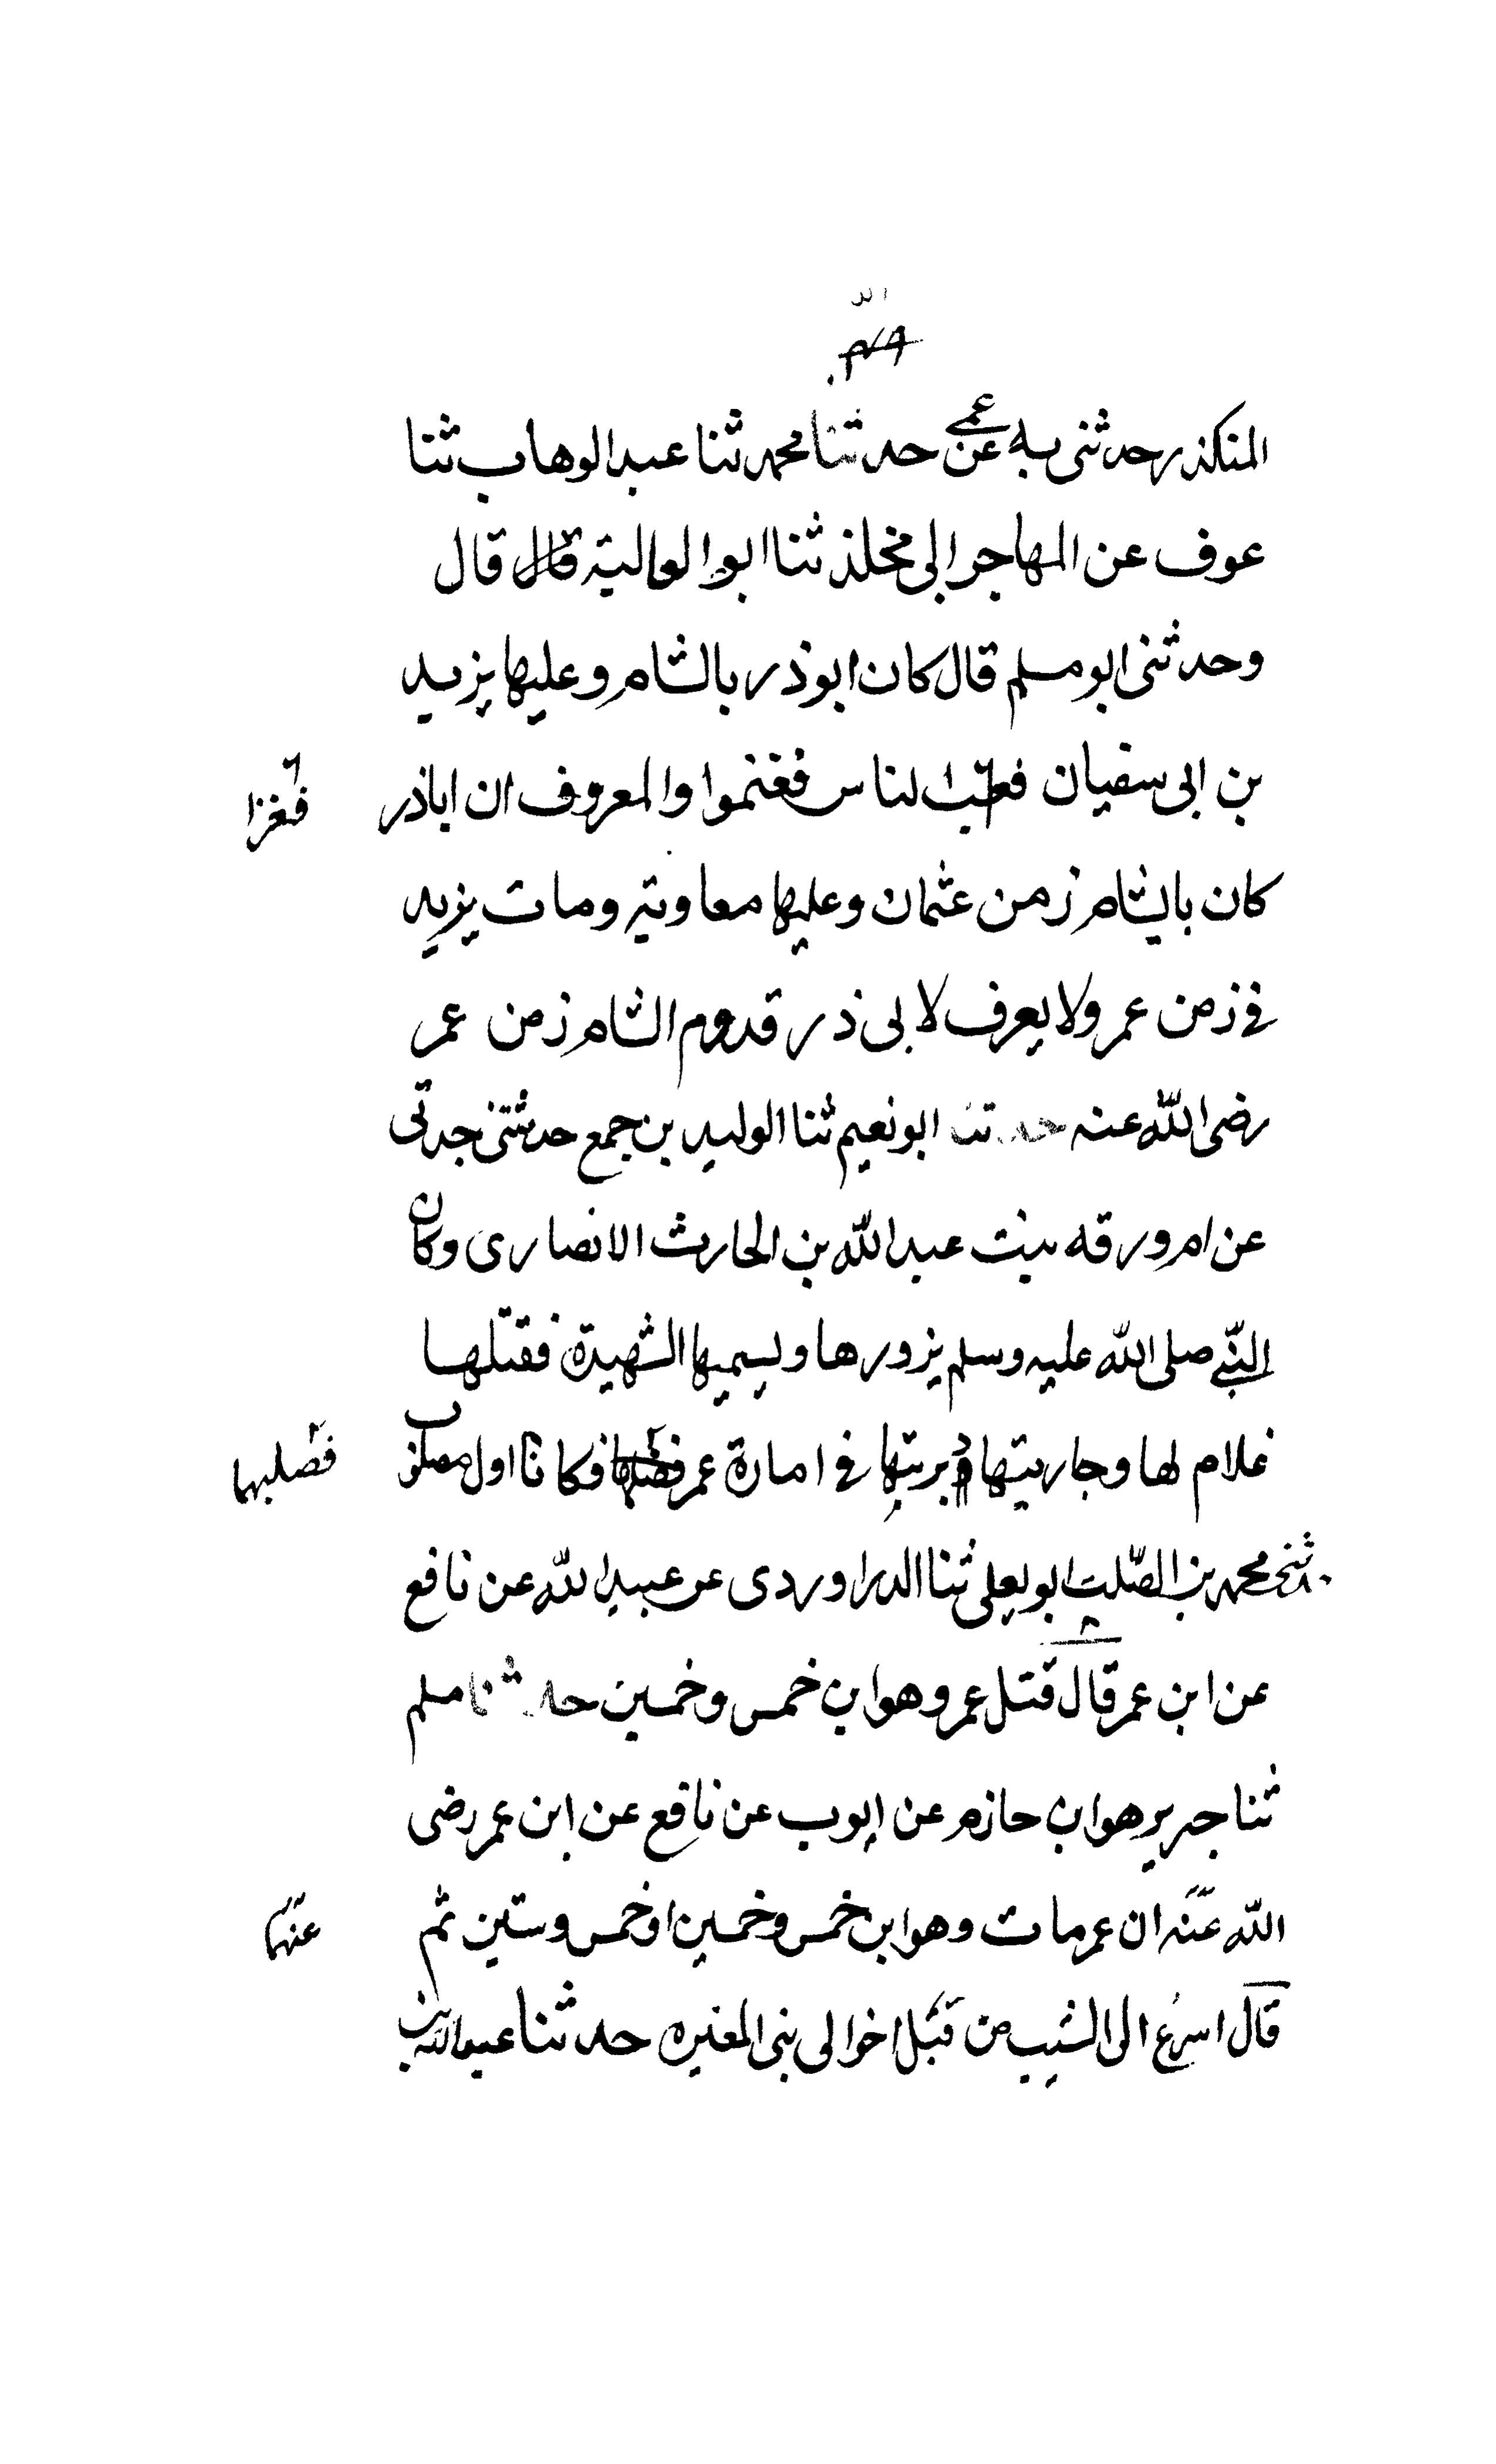 المنكدر حدثنى به عن عمى حدثنا محمد ثنا عبد الوهاب ثنا
عوف عن المهاجر ابى مخلد ثنا ابو العالية قال قال
وحدثنى ابو مسلم قال كان ابو ذر بالشام وعليها يزيد
بن ابى سفيان الناس فغنموا والمعروف ان اباذر فغزا
كان بالشام زمن عثمان وعليها معاوية ومات يزيد
فى زمن عمر ولا يعرف لابى ذر قدوم الشام زمن عمر
رضى الله عنه حدثنا ابو نعيم ثنا الوليد بن جمع حدثتنى جدتى
عن ام ورقه بنت عبد الله بن الحارث الانصارى وكان
النبى صلى الله عليه وسلم يزورها ويسميها الشهيدة فقتلها
غلام لها وجاريتها دبرتها فى امارة عمر فكانا اول مصلوب فصلبهما
ثنى محمد بن الصلت ابو يعلى ثنا الدراوردى عن عبيد الله عن نافع
عن ابن عمر قال قتل عمر وهو ابن خمس وخمسين حدثنا مسلم
ثنا جرير هو ابن حازم عن ايوب عن نافع عن ابن عمر رضى
الله عنه ان عمر مات وهو ابن خمس وخمسين او خمس وستين ثم عنهما
قال اسرع الى الشيب من قبل اخوالى بنى المغيره حدثنا عبد الله بن